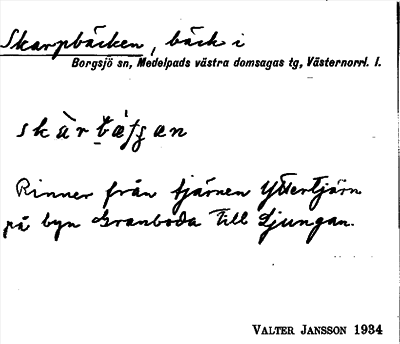 Skarpbäcken, bäck i
Borgsjö sn, Medelpads västra domsagas tg, Västernorrl. l.
Rinner från tjärnen Yttertjärn
på byn Granboda till Ljungan.
VALTER JANSSON 1934